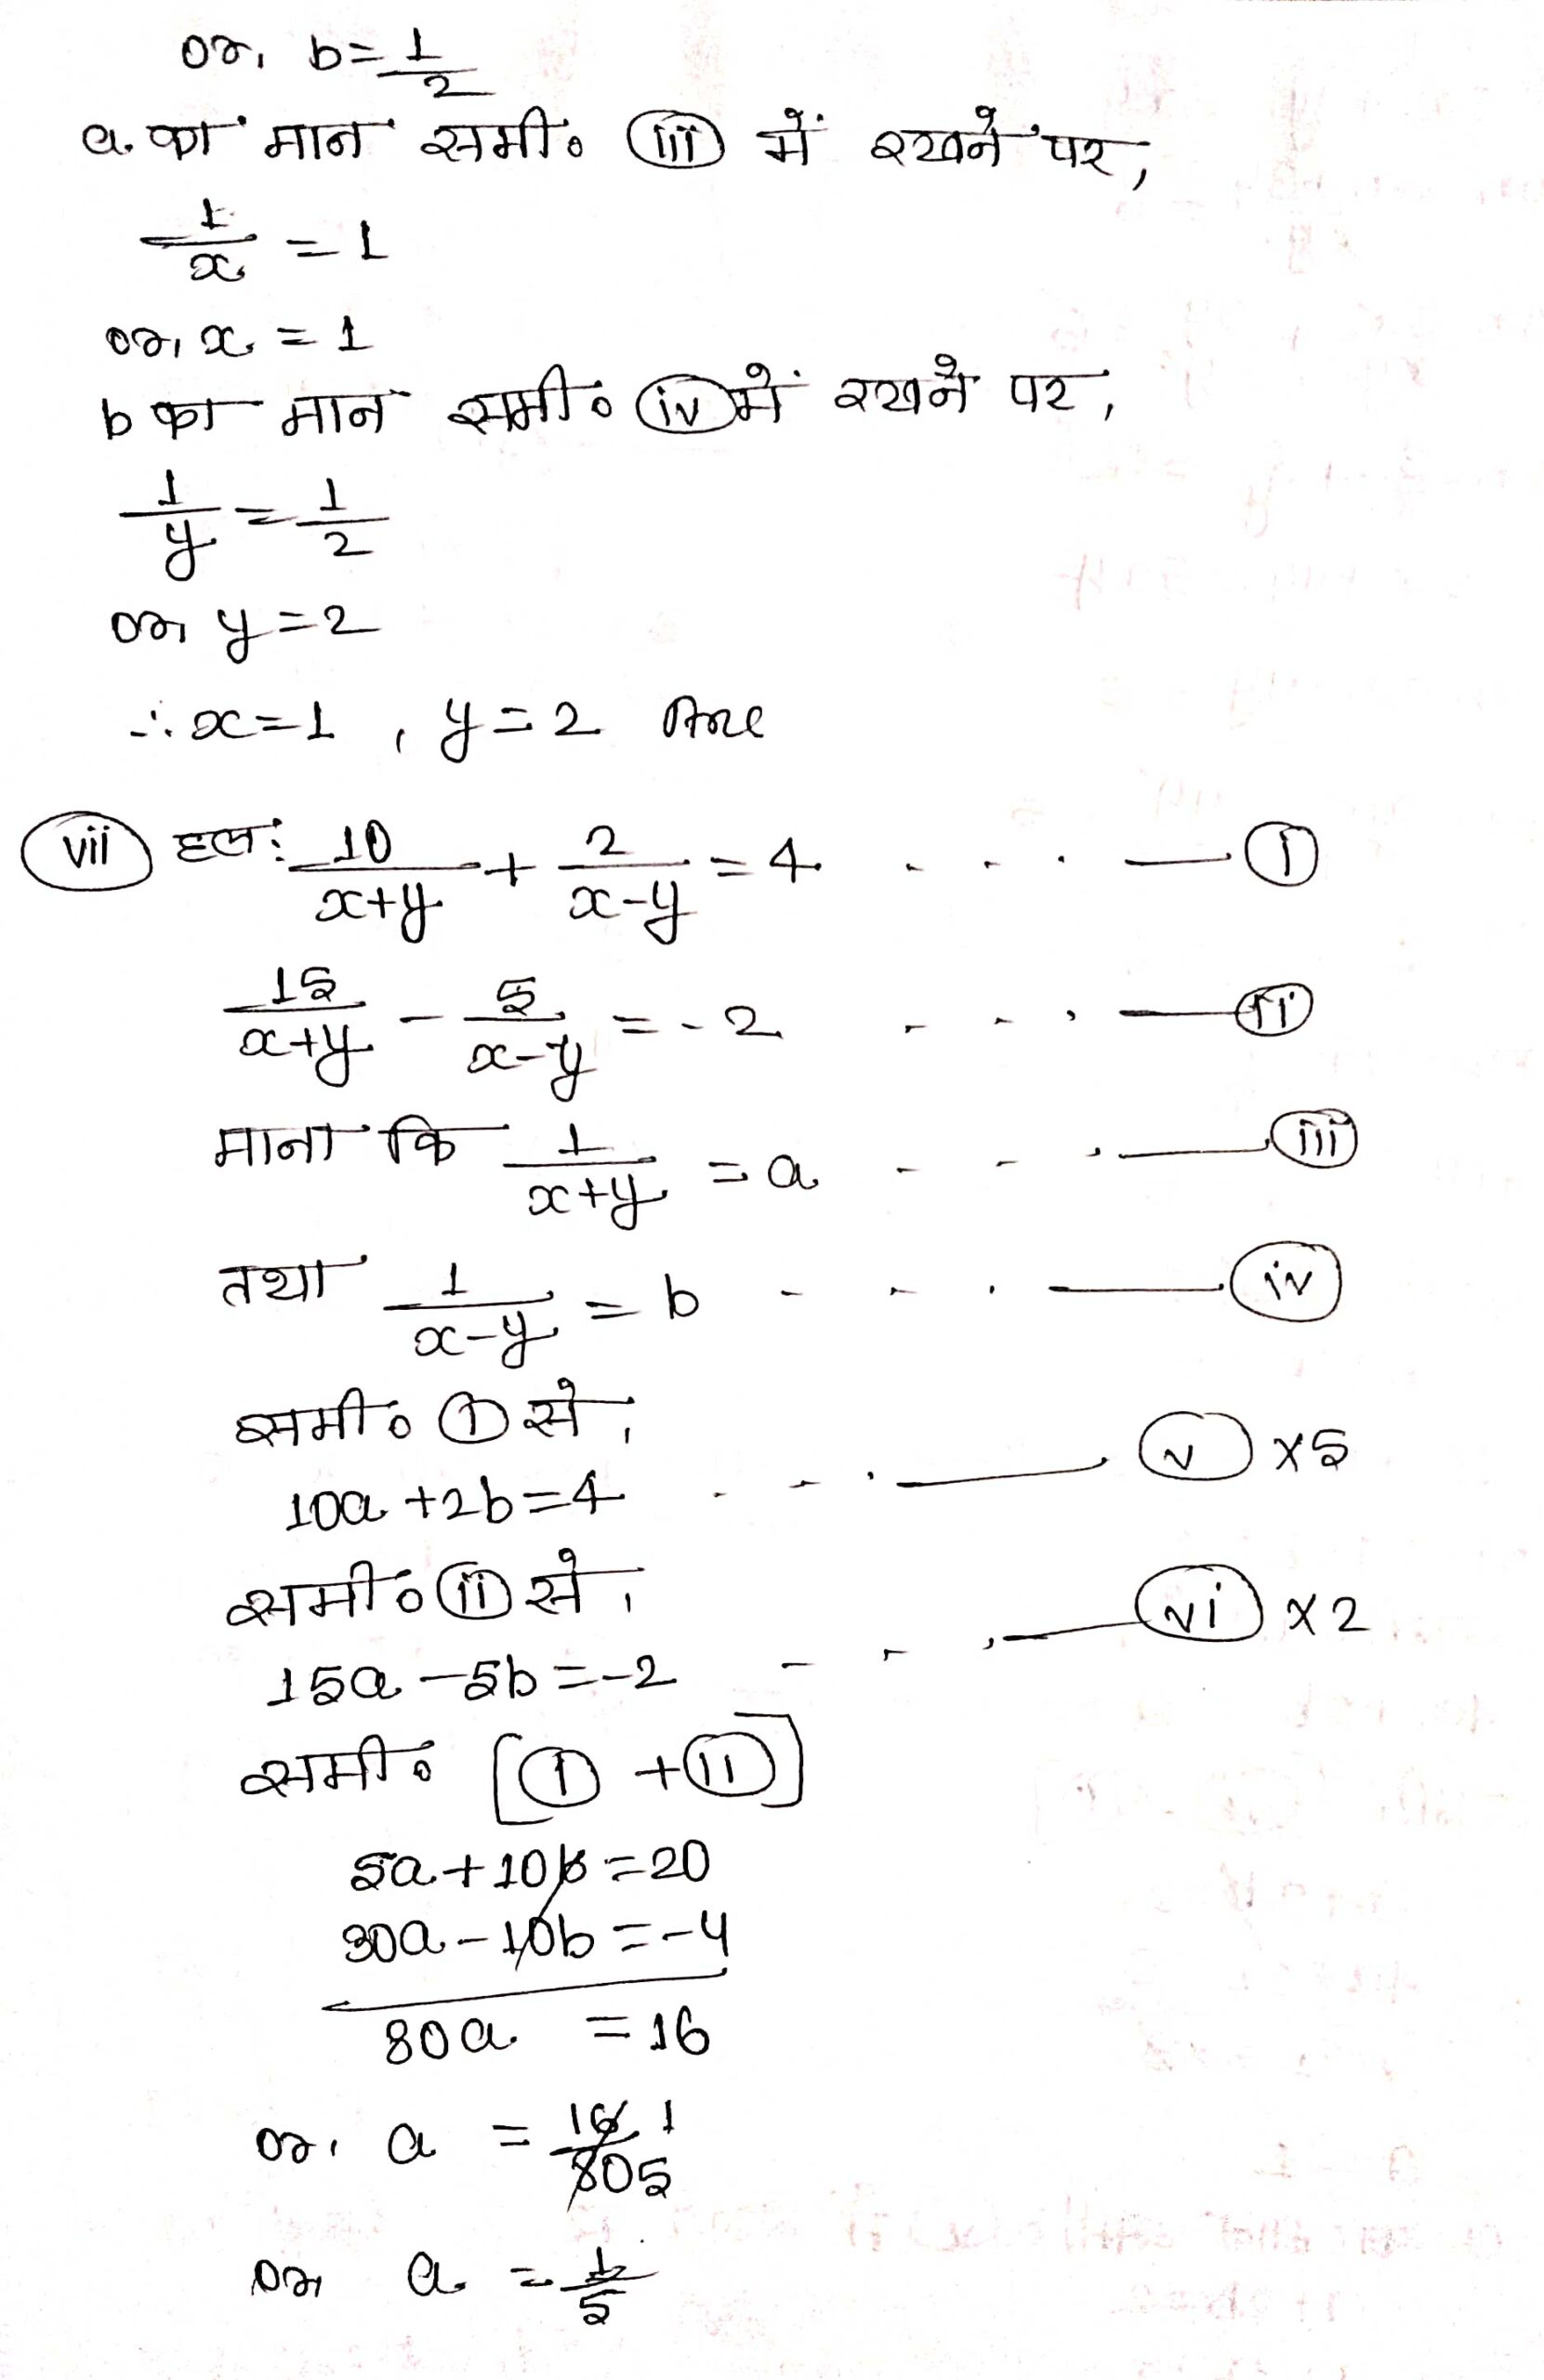 or, b = 1/2
a का मान समी० (iii) में रखने पर,
1/x = 1
or, x = 1
b का मान समी० (iv) में रखने पर,
1/y = 1/2
or, y = 2
∴ x = 1 , y = 2 Ans
(vii) हल: 10/(x+y) + 2/(x-y) = 4 - - . — (i)
15/(x+y) - 5/(x-y) = -2 - - , — (ii)
माना कि 1/(x+y) = a - - . — (iii)
तथा 1/(x-y) = b - - . — (iv)
समी० (i) से,
10a + 2b = 4 - - . — (v) ×5
समी० (ii) से,
15a - 5b = -2 - - , — (vi) ×2
समी० [(i) + (ii)]
5a + 10b = 20
30a - 10b = -4
80a = 16
or, a = 16/80 1/5
or, a = 1/5